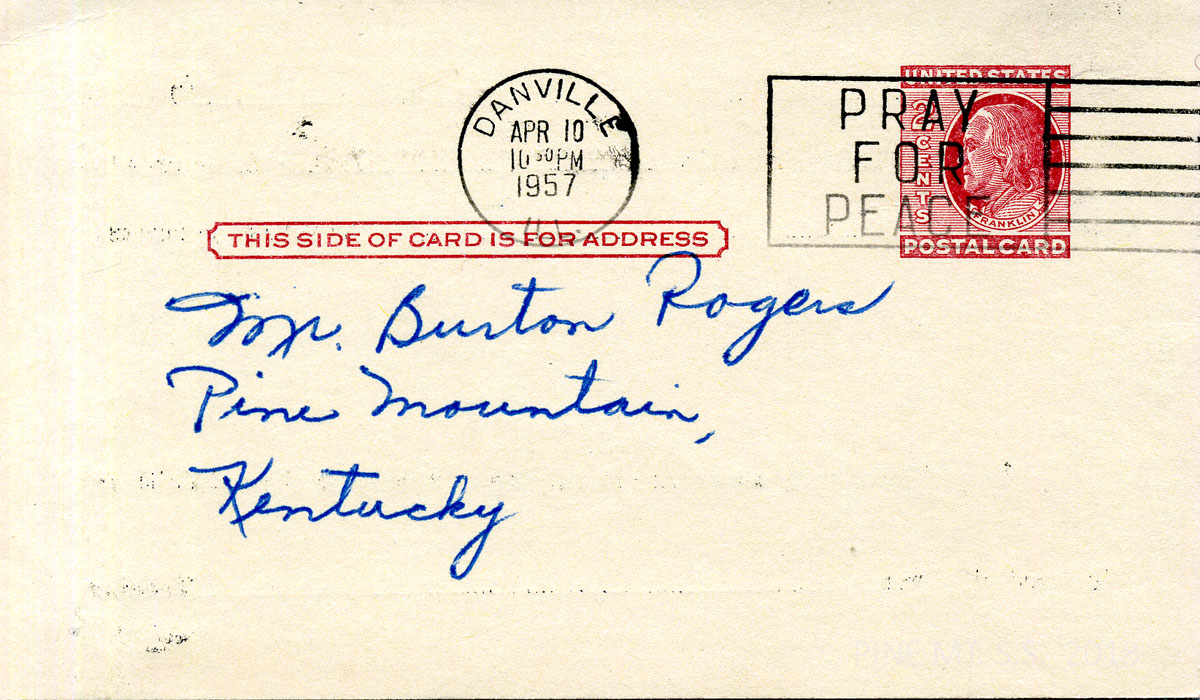 DANVILLE
APR 10
10 30 PM
1957
ILL.
PRAY
FOR
PEACE
UNITED STATES
2 CENTS
FRANKLIN
POSTAL CARD
THIS SIDE OF CARD IS FOR ADDRESS
Mr. Burton Rogers
Pine Mountain,
Kentucky